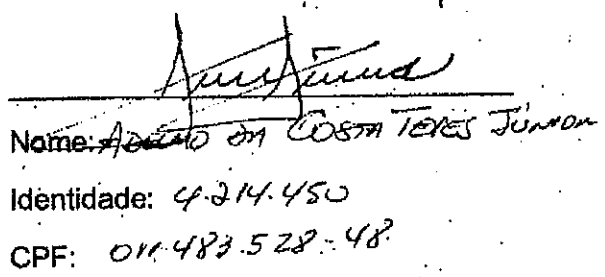 Nome: DA COSTA JÚNIOR
Identidade: 4.214.450
CPF: 011.483.528-48